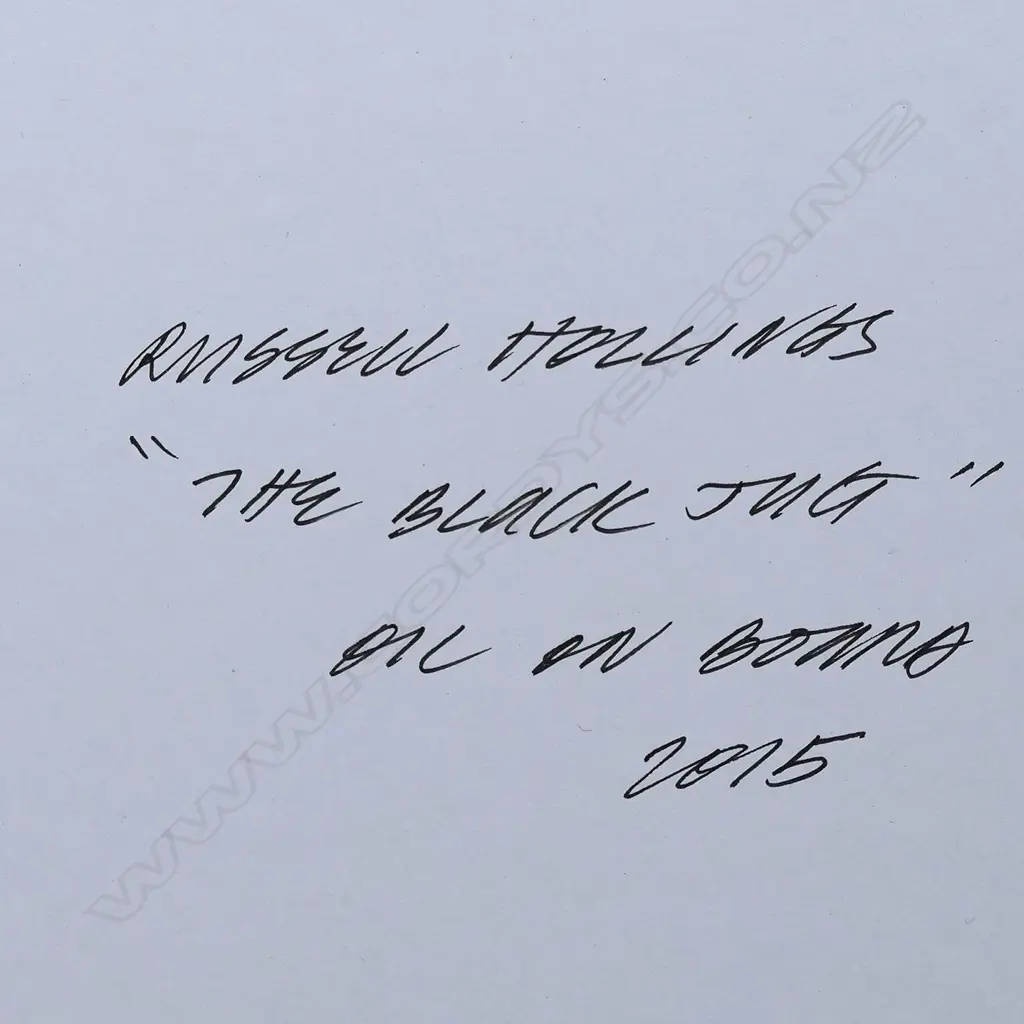 RUSSELL HOLLINGS
"THE BLACK JUG"
OIL ON BOARD
2015
WWW.CORDYS.CO.NZ